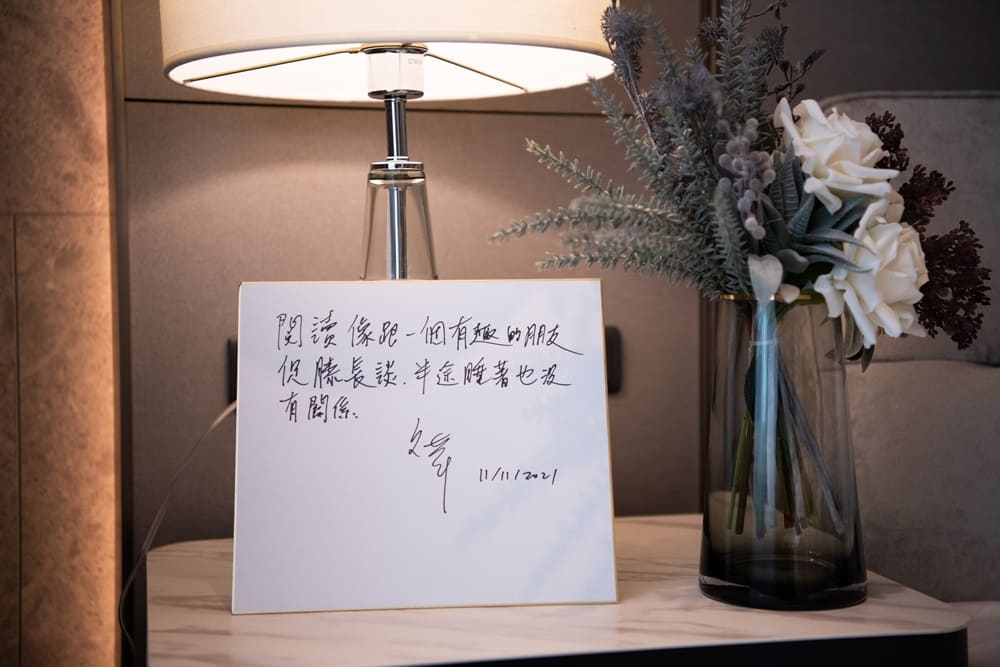 閱讀像跟一個有趣的朋友
促膝長談.半途睡著也沒
有關係.
文華
11/11/2021